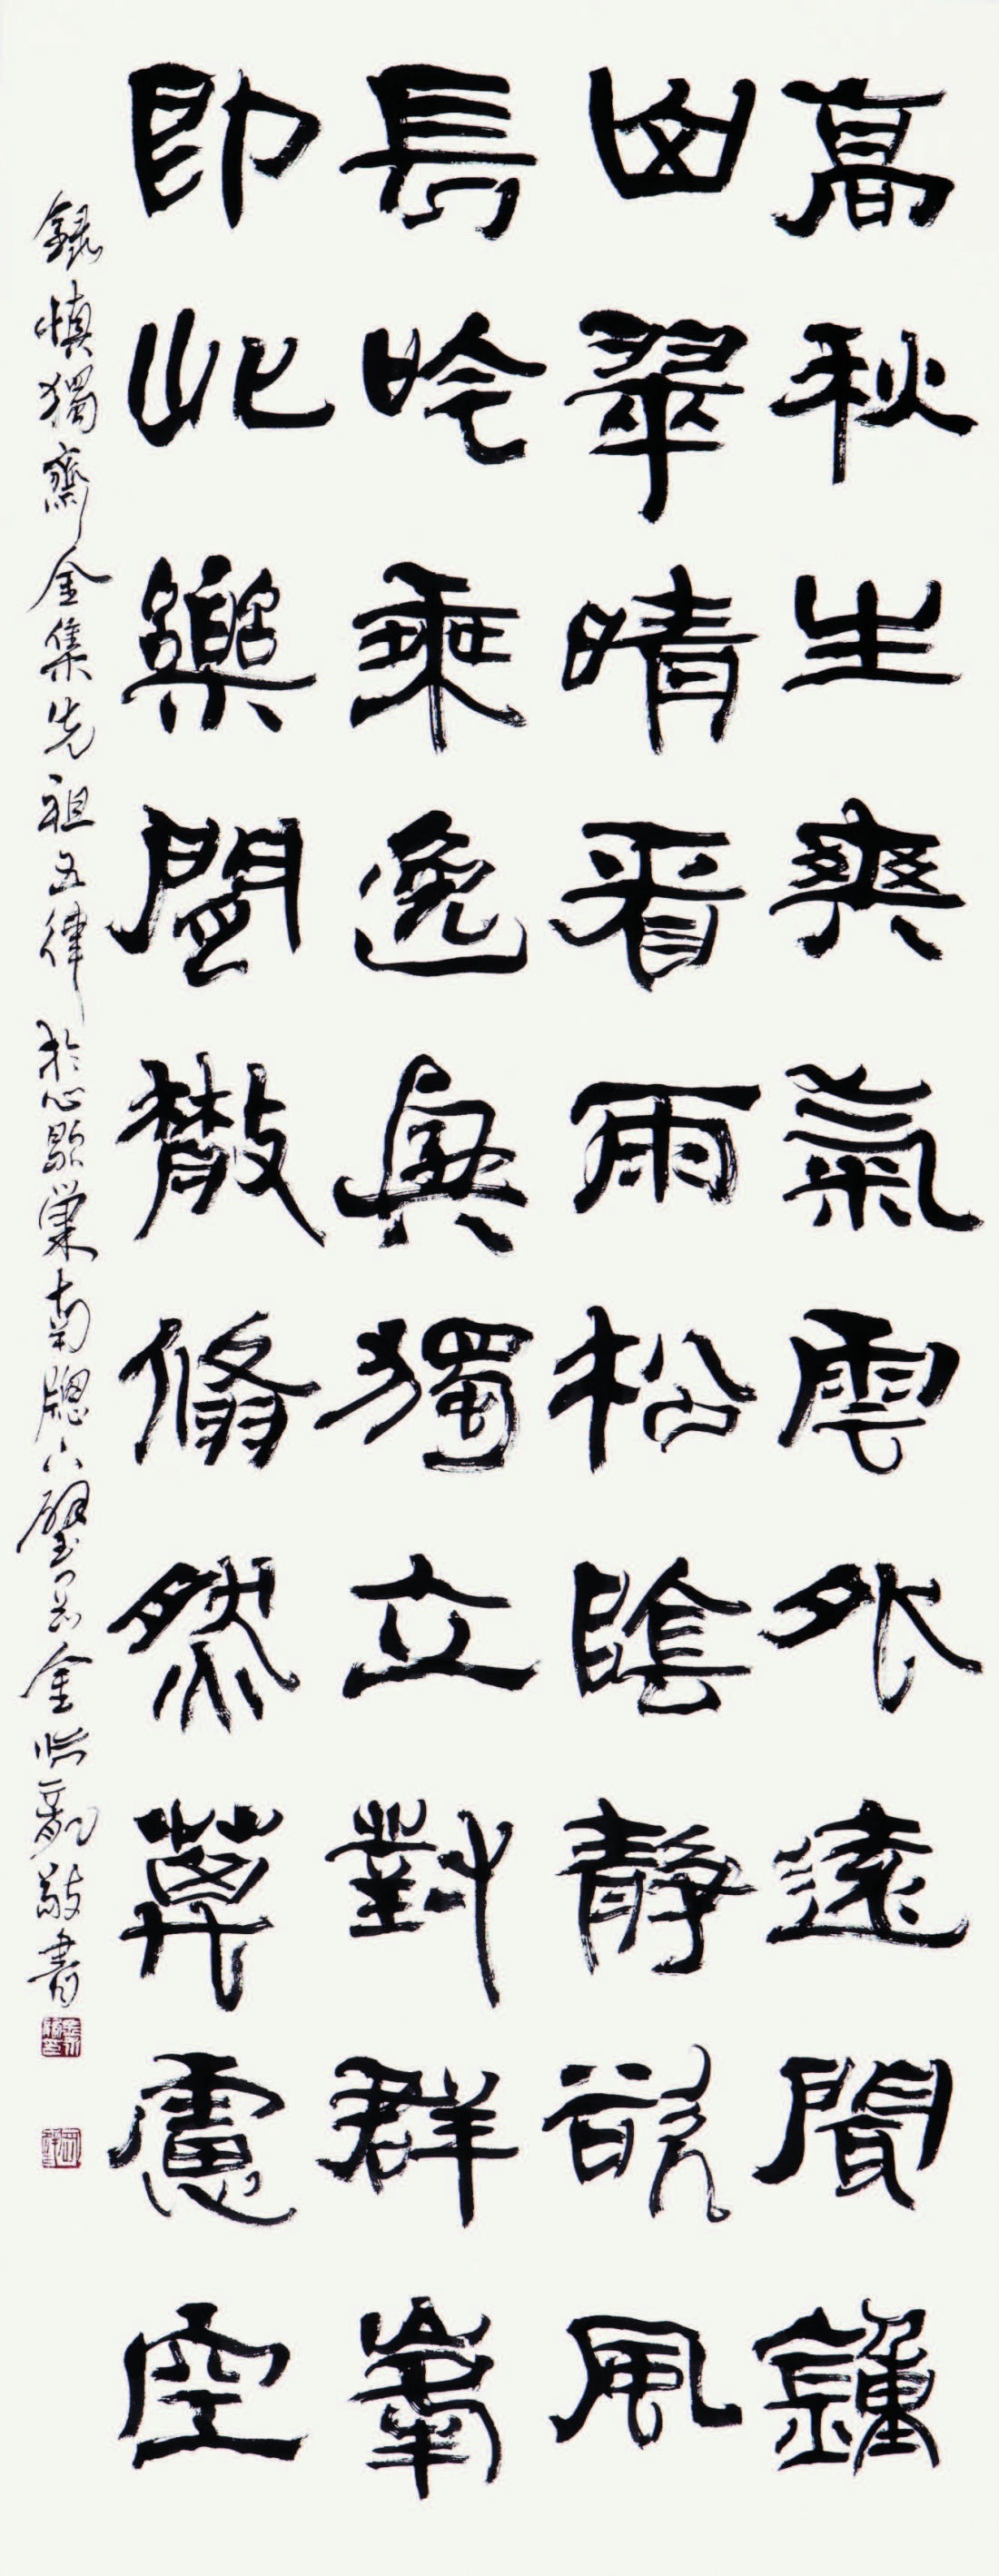 高秋生爽氣雲外遠聞鐘
翠晴看雨松陰靜欲風
長吟乘逸興獨立對群峯
即此樂閒散翛然萬慮空
錄慎獨齋金集先祖五律於心歇巢南牕下金敬書